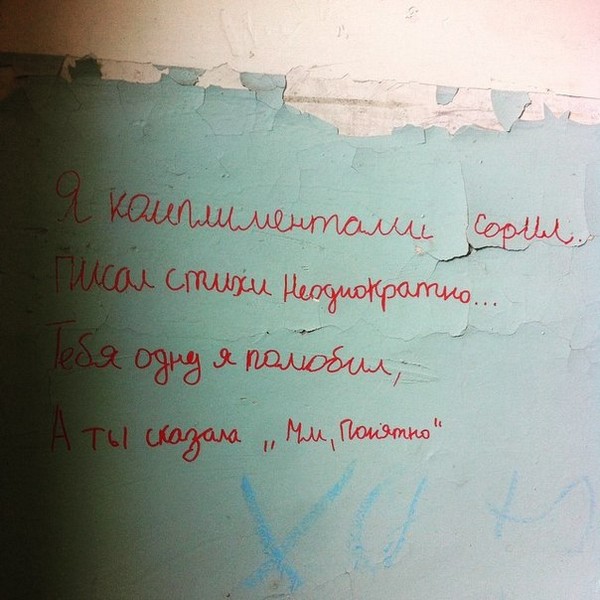 Я комплиментами сорил.
Писал стихи Неоднократно...
Тебя одну я полюбил,
А ты сказала „Мм, Понятно“